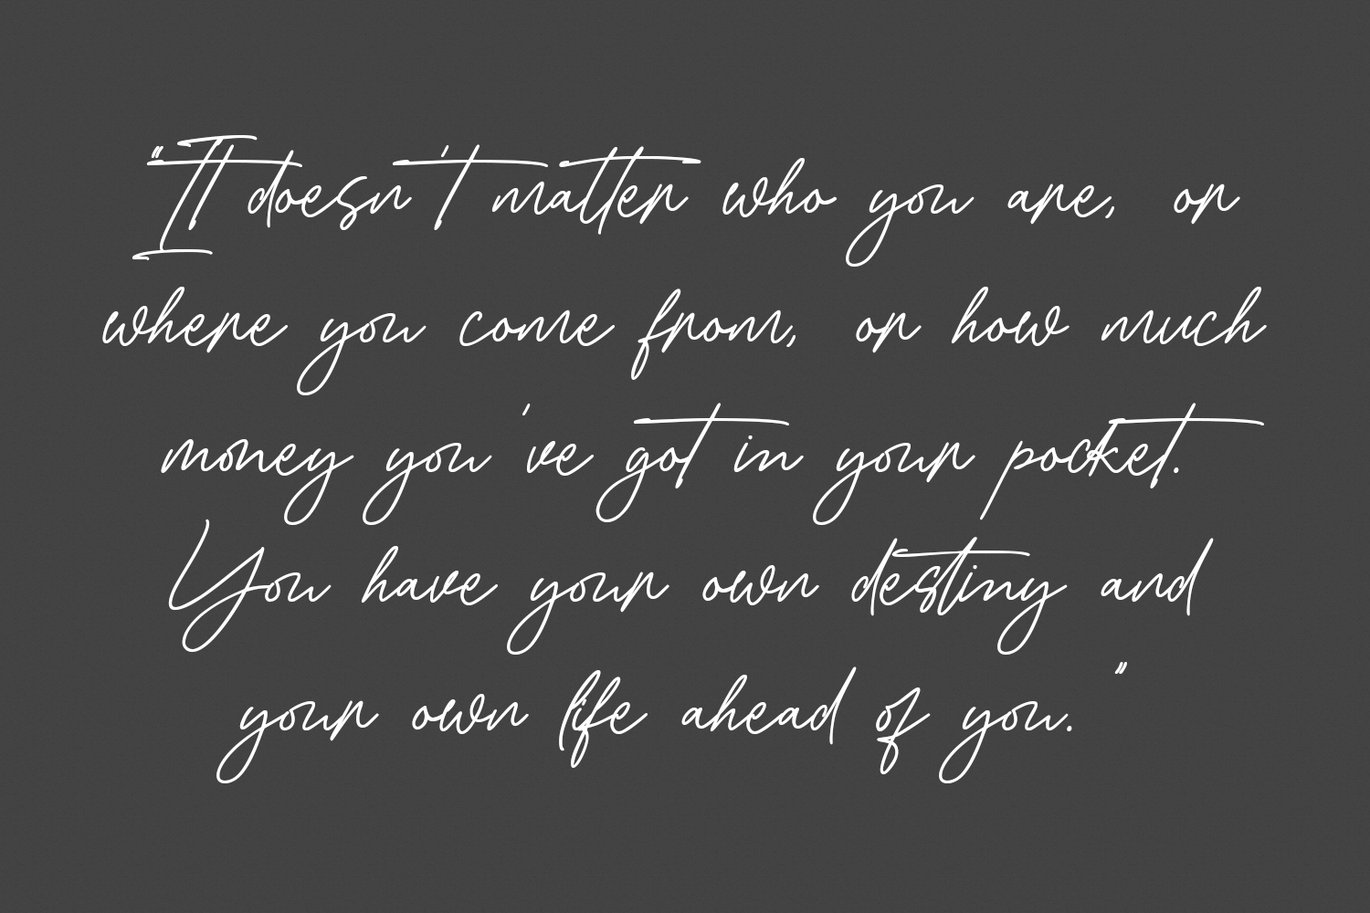 "It doesn't matter who you are, or
where you come from, or how much
money you've got in your pocket.
You have your own destiny and
your own life ahead of you."